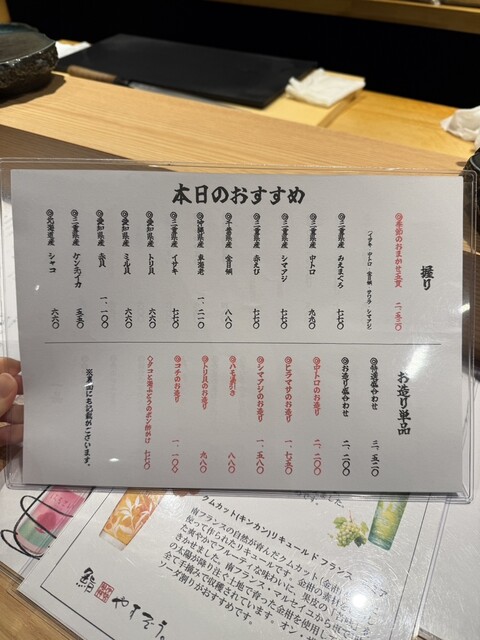 本日のおすすめ
握り
◎季節のおまかせ五貫 二、五三〇
◎三重県産 みえまぐろ 七七〇
◎三重県産 中トロ 九九〇
◎三重県産 シマアジ 七七〇
◎三重県産 赤えび 七七〇
◎千葉県産 金目鯛 八八〇
◎沖縄県産 車海老 一、二一〇
◎三重県産 イサキ 七七〇
◎愛知県産 トリ貝 六六〇
◎愛知県産 ミル貝 六六〇
◎愛知県産 赤貝 一、一〇〇
◎三重県産 ケンサキイカ 五五〇
◎北海道産 シャコ 六六〇
お造り単品
◎特選盛合わせ 三、五二〇
◎お造り盛合わせ 二、二〇〇
◎中トロのお造り 二、二〇〇
◎ヒラマサのお造り 一、七五〇
◎シマアジのお造り 一、五八〇
◎ハモ湯引き 八八〇
◎トリ貝のお造り 九八〇
◎コチのお造り 一、一〇〇
◇タコと海ぶどうのポン酢がけ 七七〇
※裏面にも記載がございます。
クムカット(キンカン)リキュールド フランス
南フランスの自然が育んだクムカット(金柑
使って作られたリキュールです。金柑の素材
た爽やかでフルーティな味わいに、果皮の
きかせました。南フランス・マルセイユから
の太陽が降り注ぐ土地で育った金柑を使用し
全て手摘みで収穫されています。オン・
ソーダ割りがおすすめです。
鮨